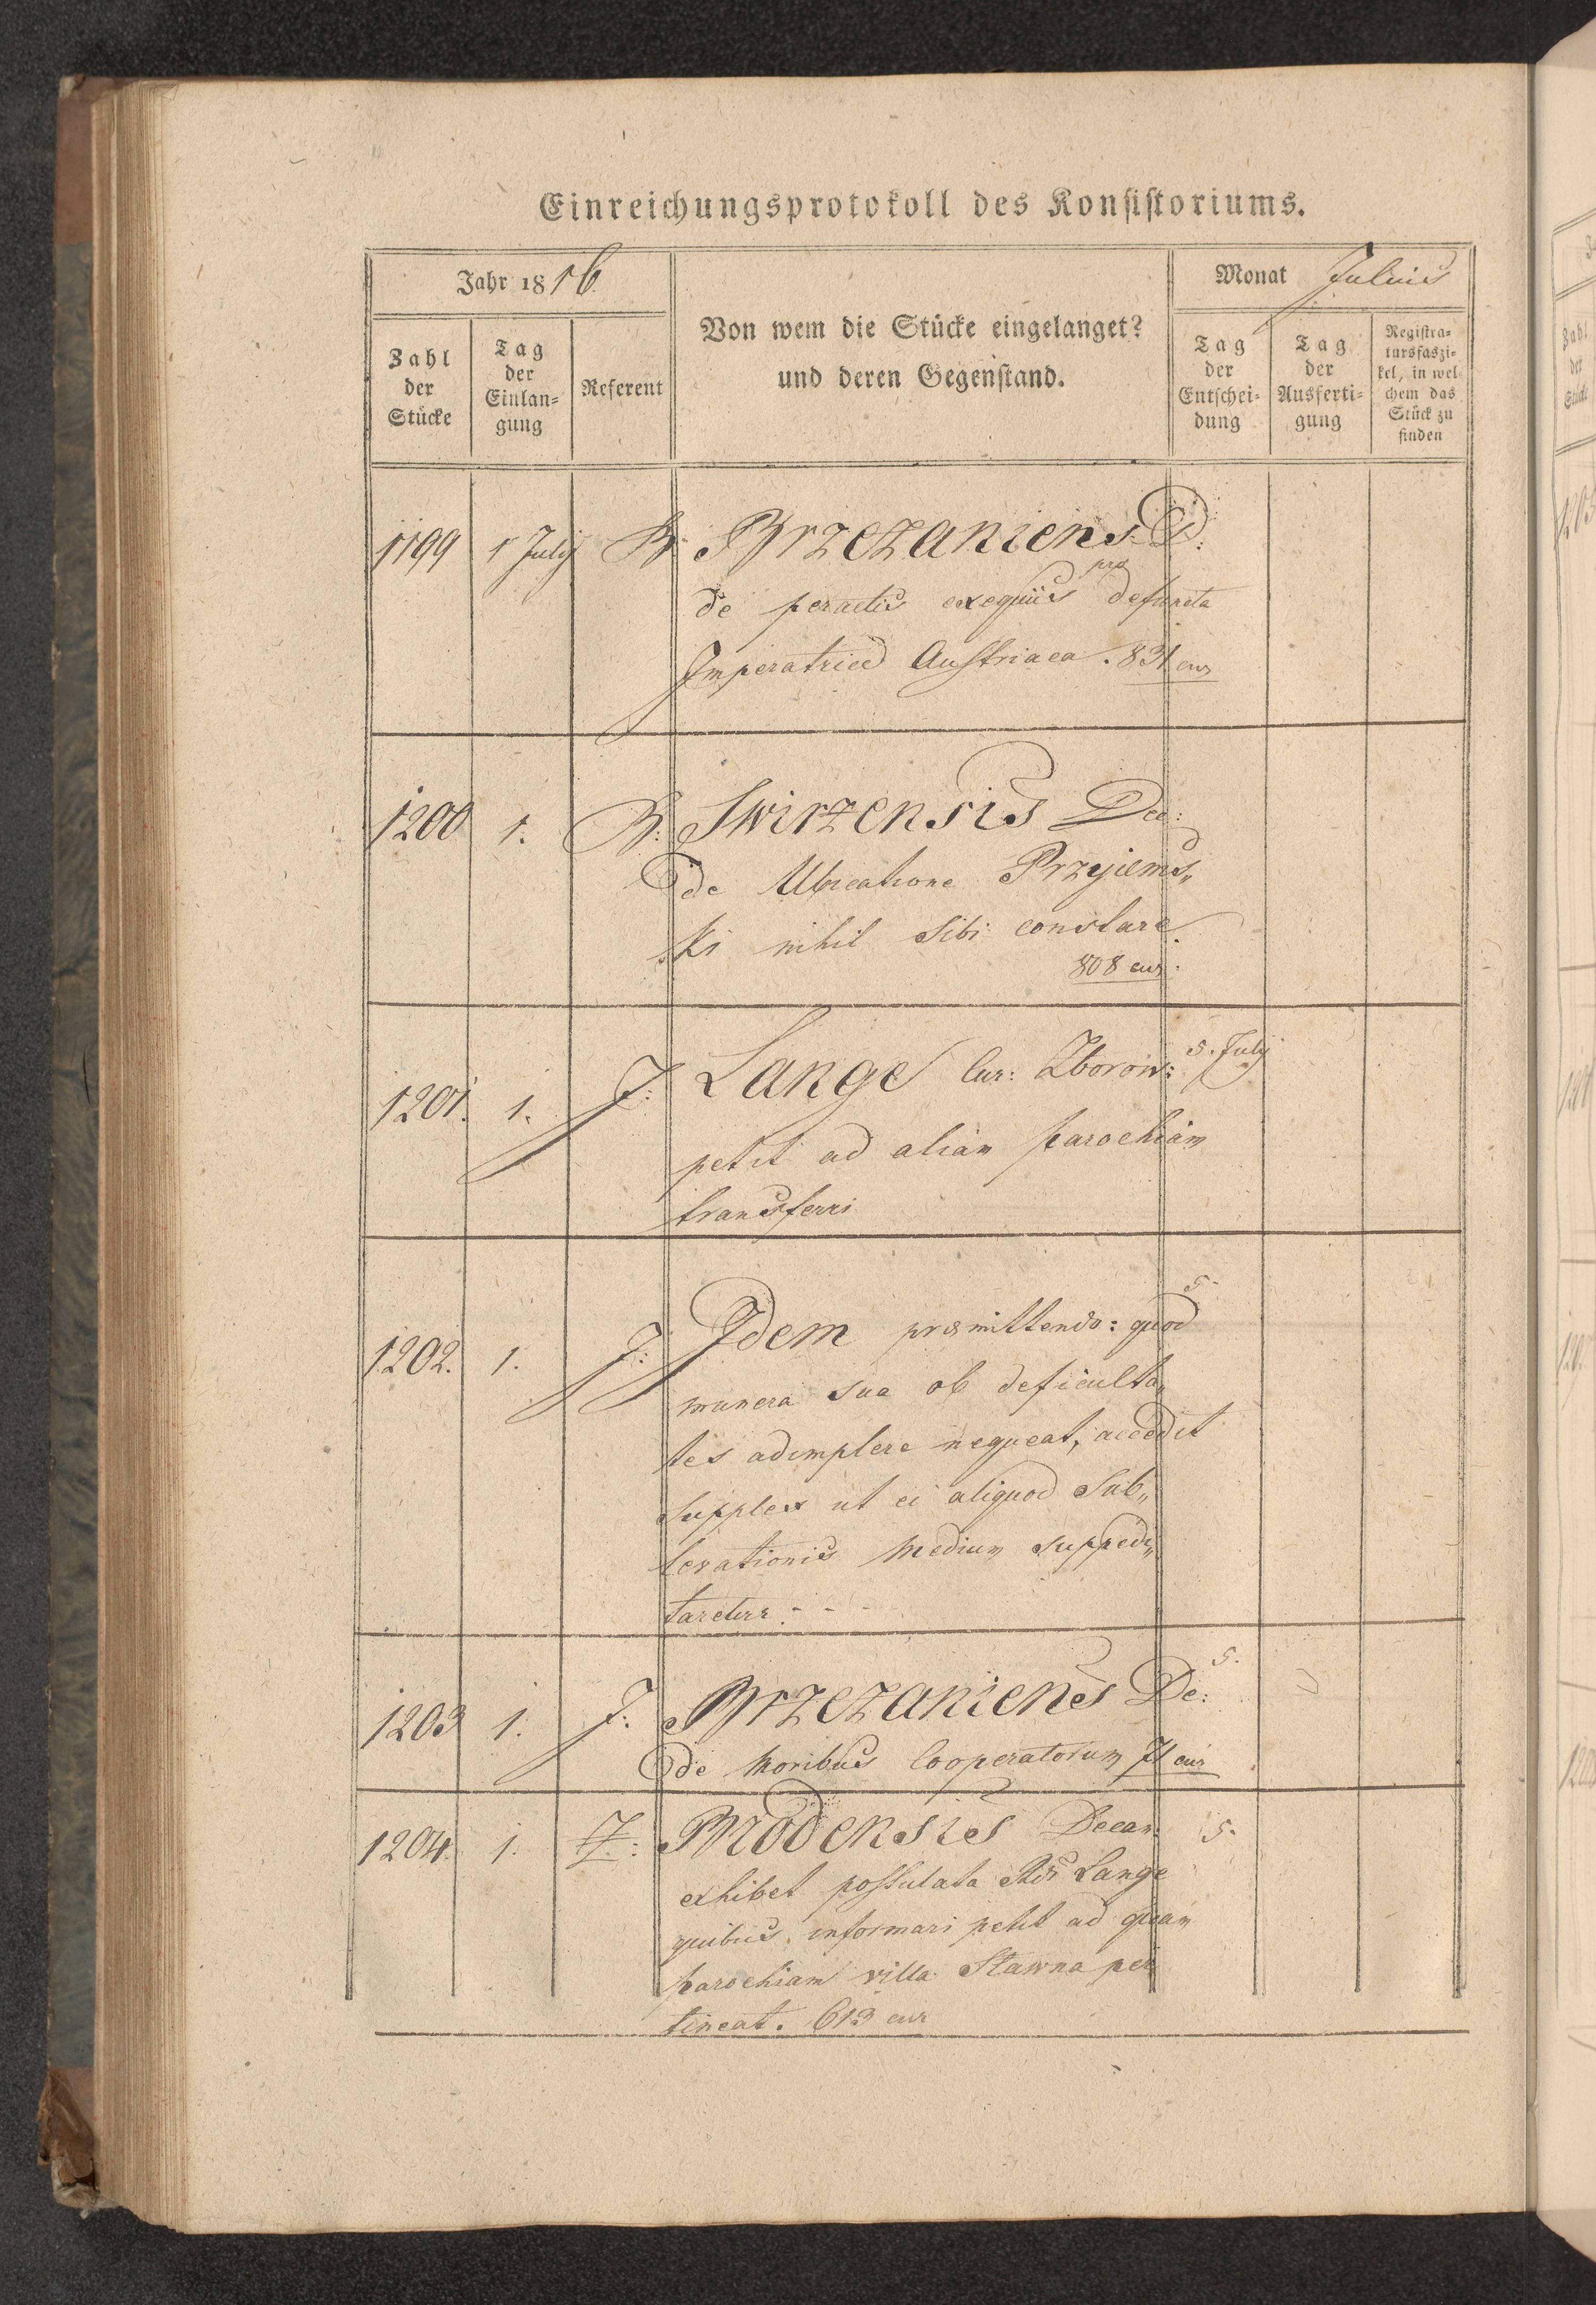 Einreichungsprotokoll des Konsistoriums.
Jahr 1816.
Monat Julius
Zahl der Stücke
Tag der Einlan=gung
Referent
Von wem die Stücke eingelanget?
und deren Gegenstand.
Tag der Entschei=dung
Tag der Ausferti=gung
Registra=tursfaszi=kel, in wel=chem das Stück zu finden
1199 1 July B: Brzezaniens. D:
de peractis exequiis pro defuncta
Imperatrice Austriaca. 831 cur
1200 1. B: Swirzensis Dec:
de Ubicatione Przyjems„
ki nihil sibi constare.
808 cur.
1201. 1. J: Lange Cur: Zborow: 5. July
petit ad aliam parochiam
transferri
1202. 1. J: Idem promittendo: quod 5.
munera sua ob deficulta„
tes adimplere nequeat, accedit
supplex ut ei aliquod Sub„
levationis medium suppedi„
taretur. - - -
1203 1. J: Brzezaniens De: 5.
de moribus Cooperatorum 71 cur
1204. 1. J: Brodensies Decan: 5.
exhibet postulata Lange
quibus informari petit ad quam
parochiam villa Stawna per
tineat. 613 cur